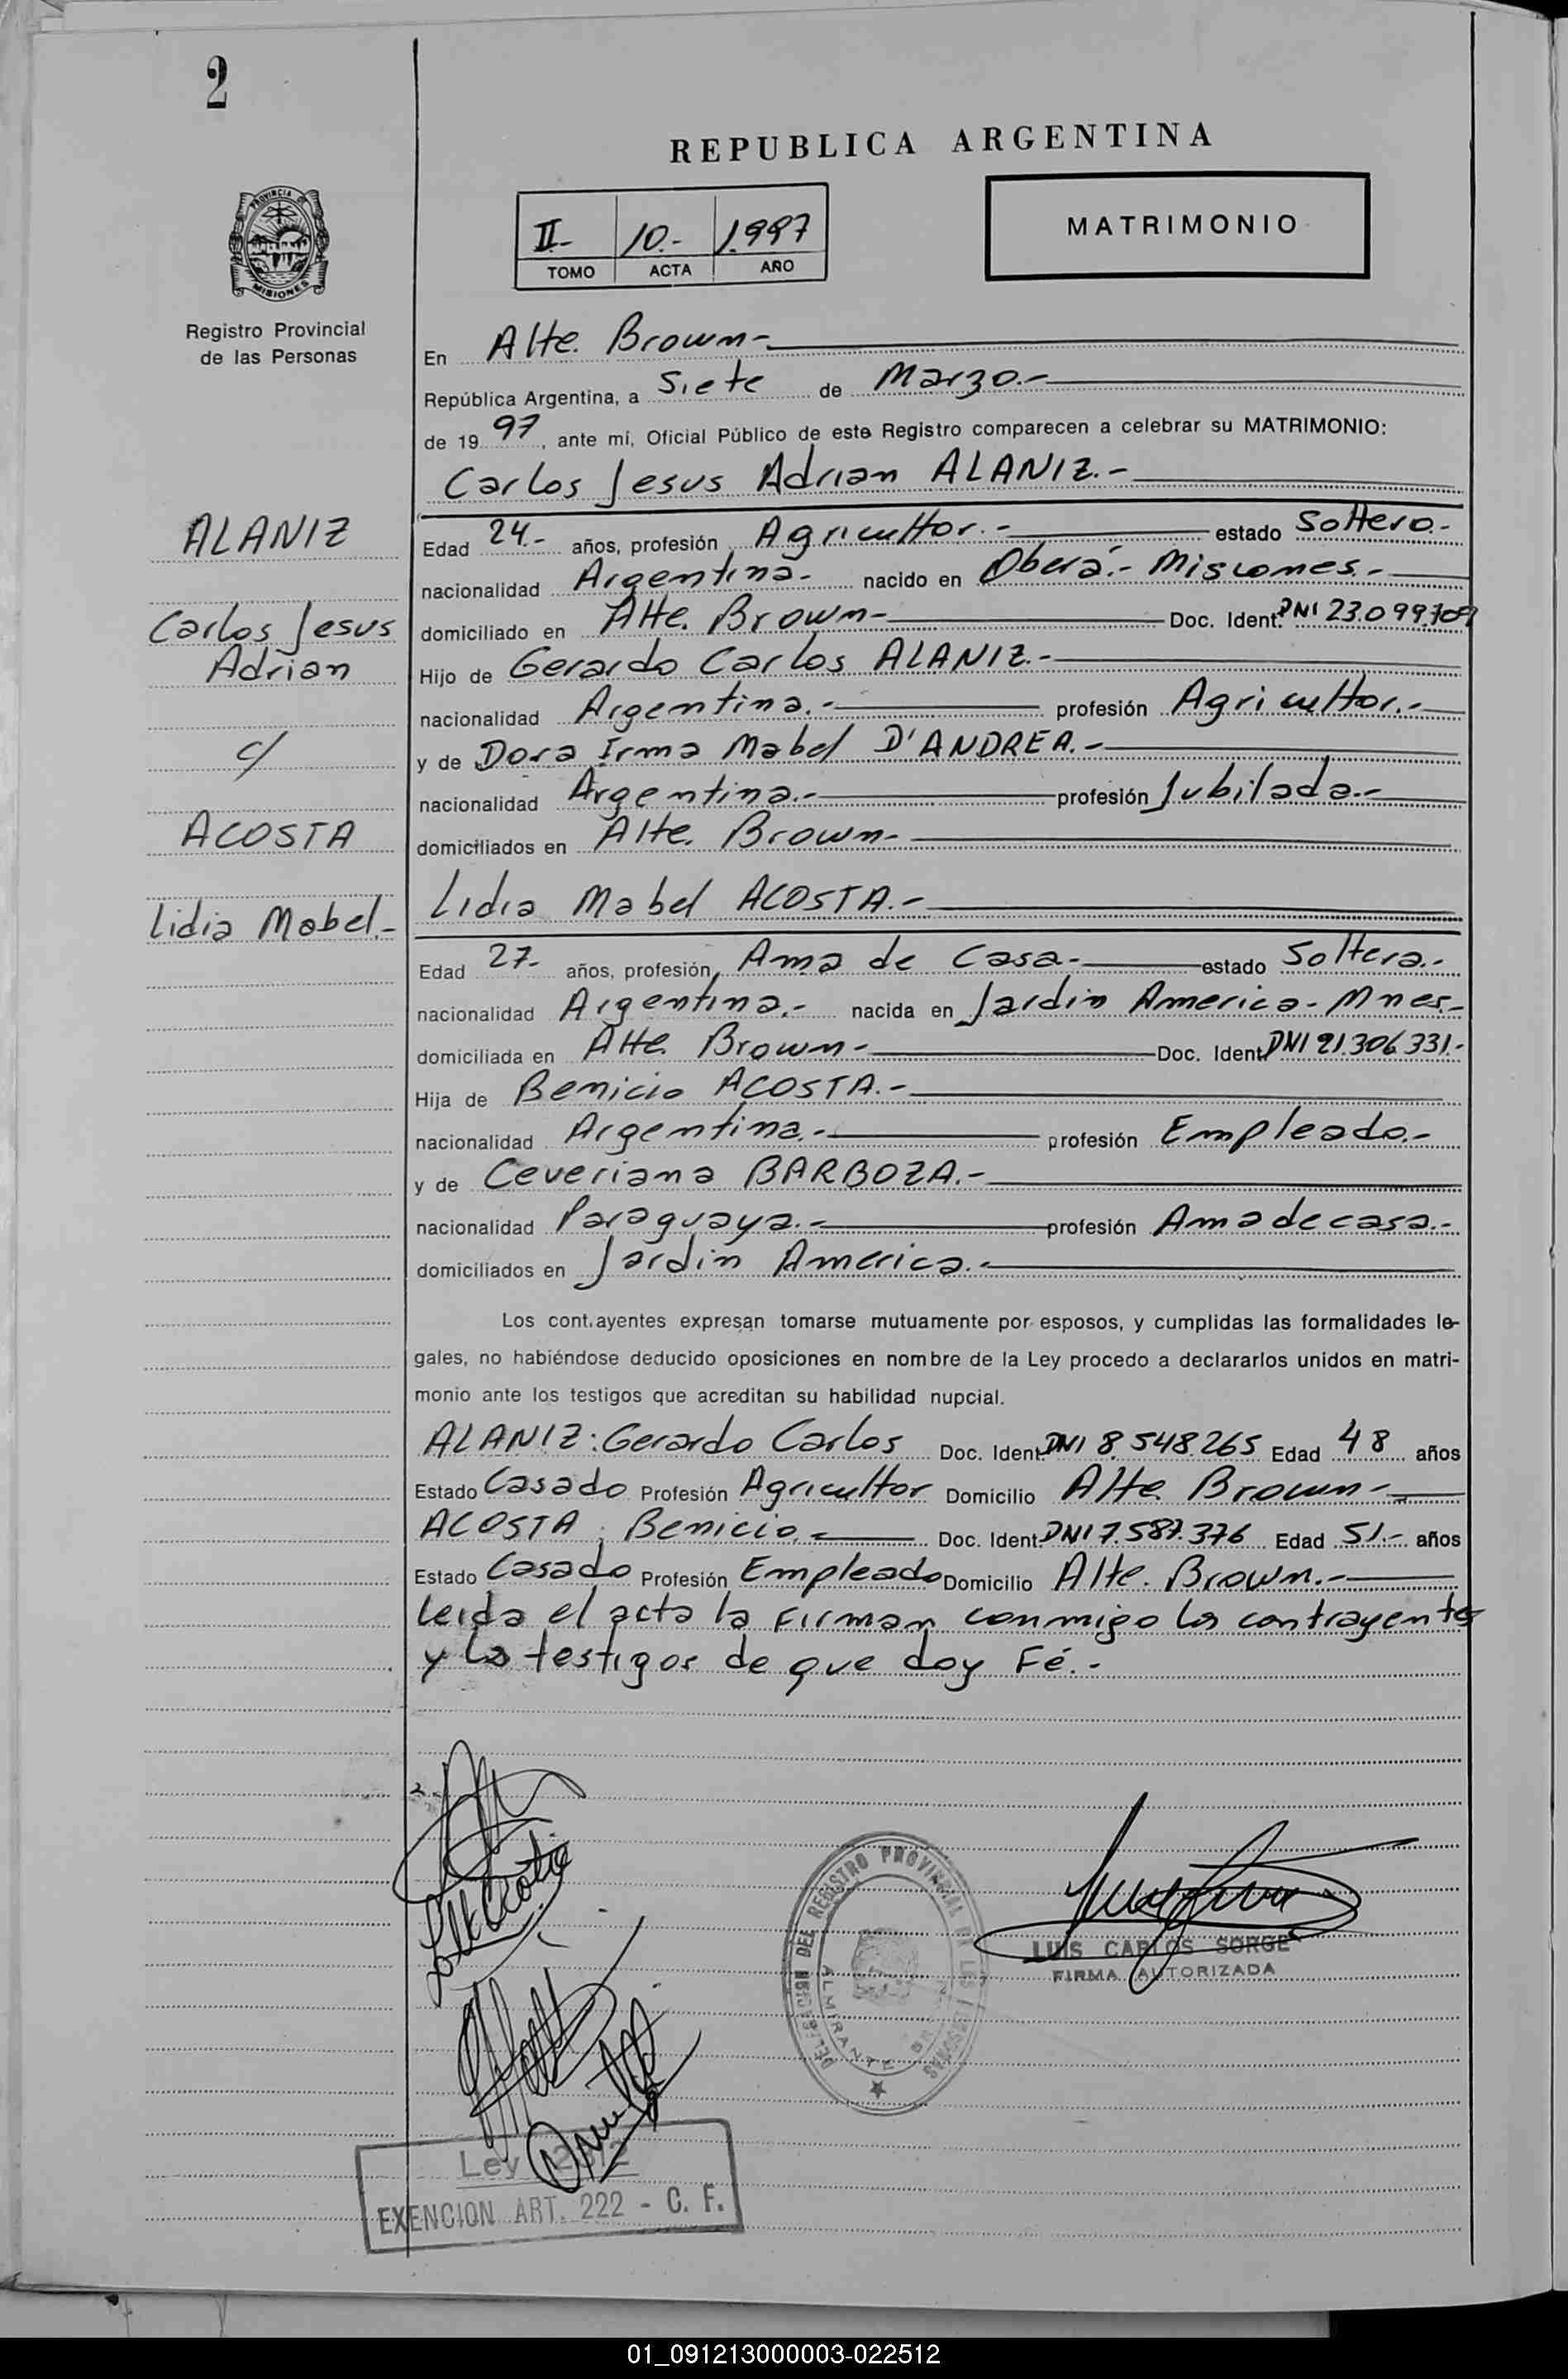 2
REPUBLICA ARGENTINA
PROVINCIA DE
MISIONES
Registro Provincial
de las Personas
II- 10.- 1.997
TOMO ACTA AÑO
MATRIMONIO
En Alte. Brown-
República Argentina, a Siete de Marzo.-
de 19 97, ante mí, Oficial Público de este Registro comparecen a celebrar su MATRIMONIO:
Carlos Jesus Adrian ALANIZ.-
ALANIZ
Carlos Jesus
Adrian
c/
ACOSTA
Lidia Mabel.-
Edad 24.- años, profesión Agricultor.- estado Soltero.-
nacionalidad Argentina.- nacido en Oberá.- Misiones.-
domiciliado en Alte. Brown- Doc. Ident. DNI 23.099.709
Hijo de Gerardo Carlos ALANIZ.-
nacionalidad Argentina.- profesión Agricultor.-
y de Dora Irma Mabel D'ANDREA.-
nacionalidad Argentina.- profesión Jubilada.-
domiciliados en Alte. Brown-
Lidia Mabel ACOSTA.-
Edad 27.- años, profesión, Ama de Casa.- estado Soltera.-
nacionalidad Argentina.- nacida en Jardin America- Mnes.-
domiciliada en Alte. Brown- Doc. Ident. DNI 21.306.331.-
Hija de Benicio ACOSTA.-
nacionalidad Argentina.- profesión Empleado.-
y de Ceveriana BARBOZA.-
nacionalidad Paraguaya.- profesión Ama de casa.-
domiciliados en Jardin America.-
Los contrayentes expresan tomarse mutuamente por esposos, y cumplidas las formalidades le-
gales, no habiéndose deducido oposiciones en nombre de la Ley procedo a declararlos unidos en matri-
monio ante los testigos que acreditan su habilidad nupcial.
ALANIZ: Gerardo Carlos Doc. Ident. DNI 8.548.265 Edad 48 años
Estado Casado Profesión Agricultor Domicilio Alte. Brown-
ACOSTA: Benicio.- Doc. Ident. DNI 7.587.376 Edad 51.- años
Estado Casado Profesión Empleado Domicilio Alte. Brown.-
leida el acta la Firman conmigo los contrayentes
y los testigos de que doy Fé.-
DELEGACION DEL REGISTRO PROVINCIAL DE LAS PERSONAS
ALMIRANTE
LUIS CARLOS SORGE
FIRMA AUTORIZADA
Ley
EXENCION ART. 222 - C. F.
01_091213000003-022512